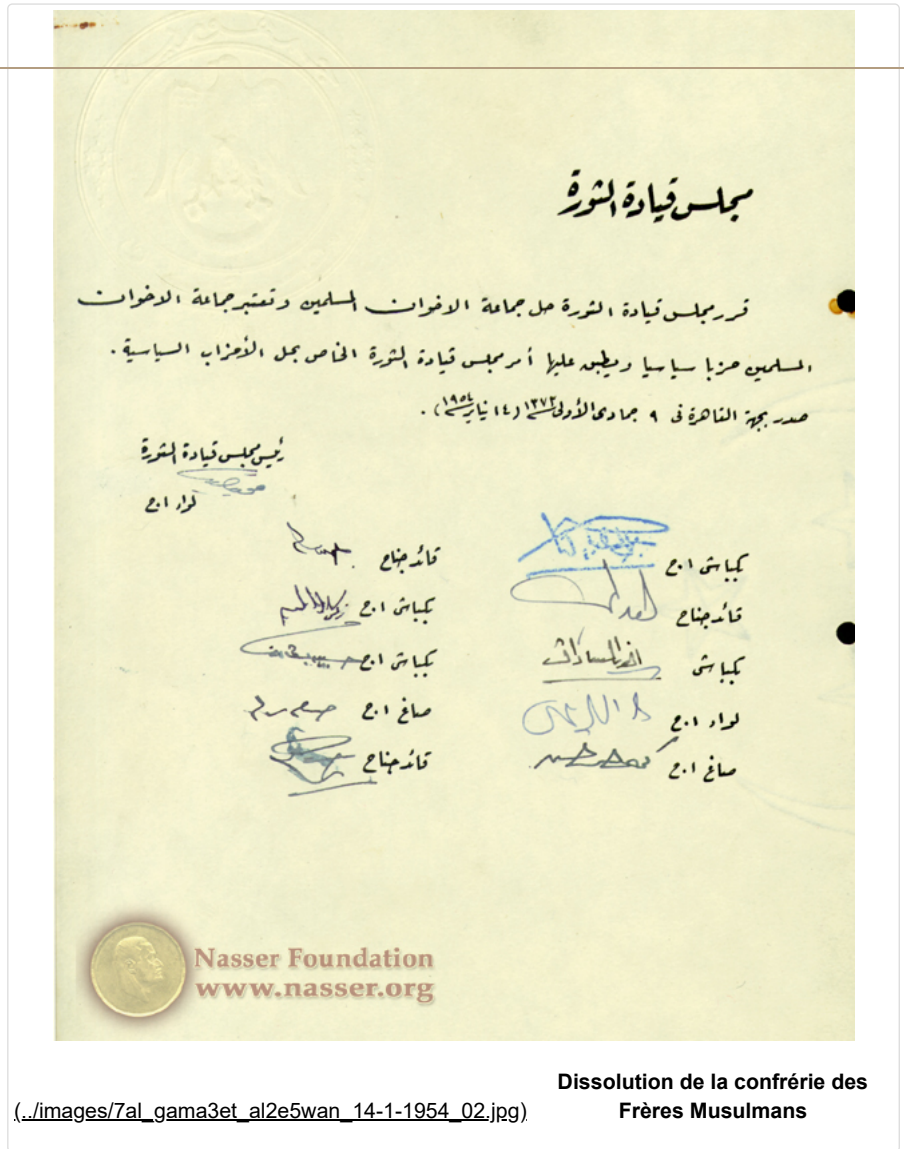 مجلس قيادة الثورة
قرر مجلس قيادة الثورة حل جماعة الاخوان المسلمين وتعتبر جماعة الاخوان
المسلمين حزبا سياسيا ويطبق عليها أمر مجلس قيادة الثورة الخاص بحل الأحزاب السياسية .
صدر بجهة القاهرة فى ٩ جمادى الأولى سنة ١٣٧٣ (١٤ يناير سنة ١٩٥٤) .
رئيس مجلس قيادة الثورة
لواء ا.ح
بكباشى ا.ح
قائد جناح
قائد جناح
بكباشى ا.ح زكريا
بكباشى أنور السادات
بكباشى ا.ح
لواء ا.ح
صاغ ا.ح
صاغ ا.ح
قائد جناح
Nasser Foundation
www.nasser.org
(../images/7al_gama3et_al2e5wan_14-1-1954_02.jpg)
Dissolution de la confrérie des
Frères Musulmans